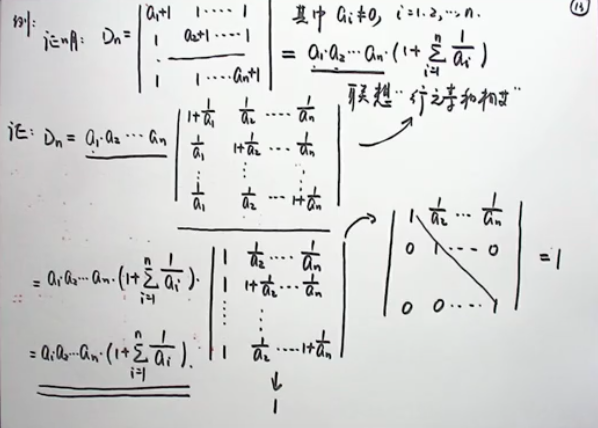 例: 证明: Dn = | a₁+1 1 ···· 1 | 其中 aᵢ≠0, i=1.2,···,n. (13)
| 1 a₂+1 ···· 1 | = a₁·a₂···an·(1+∑ᵢ₌₁ⁿ 1/aᵢ)
| 1 1 ···· an+1 |
联想"行之和相等"
证: Dn = a₁·a₂···an | 1+1/a₁ 1/a₂ ···· 1/an |
| 1/a₁ 1+1/a₂ ··· 1/an |
| ⋮ ⋮ ⋮ |
| 1/a₁ 1/a₂ ··· 1+1/an |
= a₁·a₂···an·(1+∑ᵢ₌₁ⁿ 1/aᵢ)· | 1 1/a₂ ···· 1/an |
| 1 1+1/a₂ ··· 1/an |
| ⋮ ⋮ |
| 1 1/a₂ ···· 1+1/an |
↓
1
| 1 1/a₂ ··· 1/an |
| 0 1 ··· 0 | = 1
| 0 0 ···· 1 |
= a₁a₂···an·(1+∑ᵢ₌₁ⁿ 1/aᵢ).